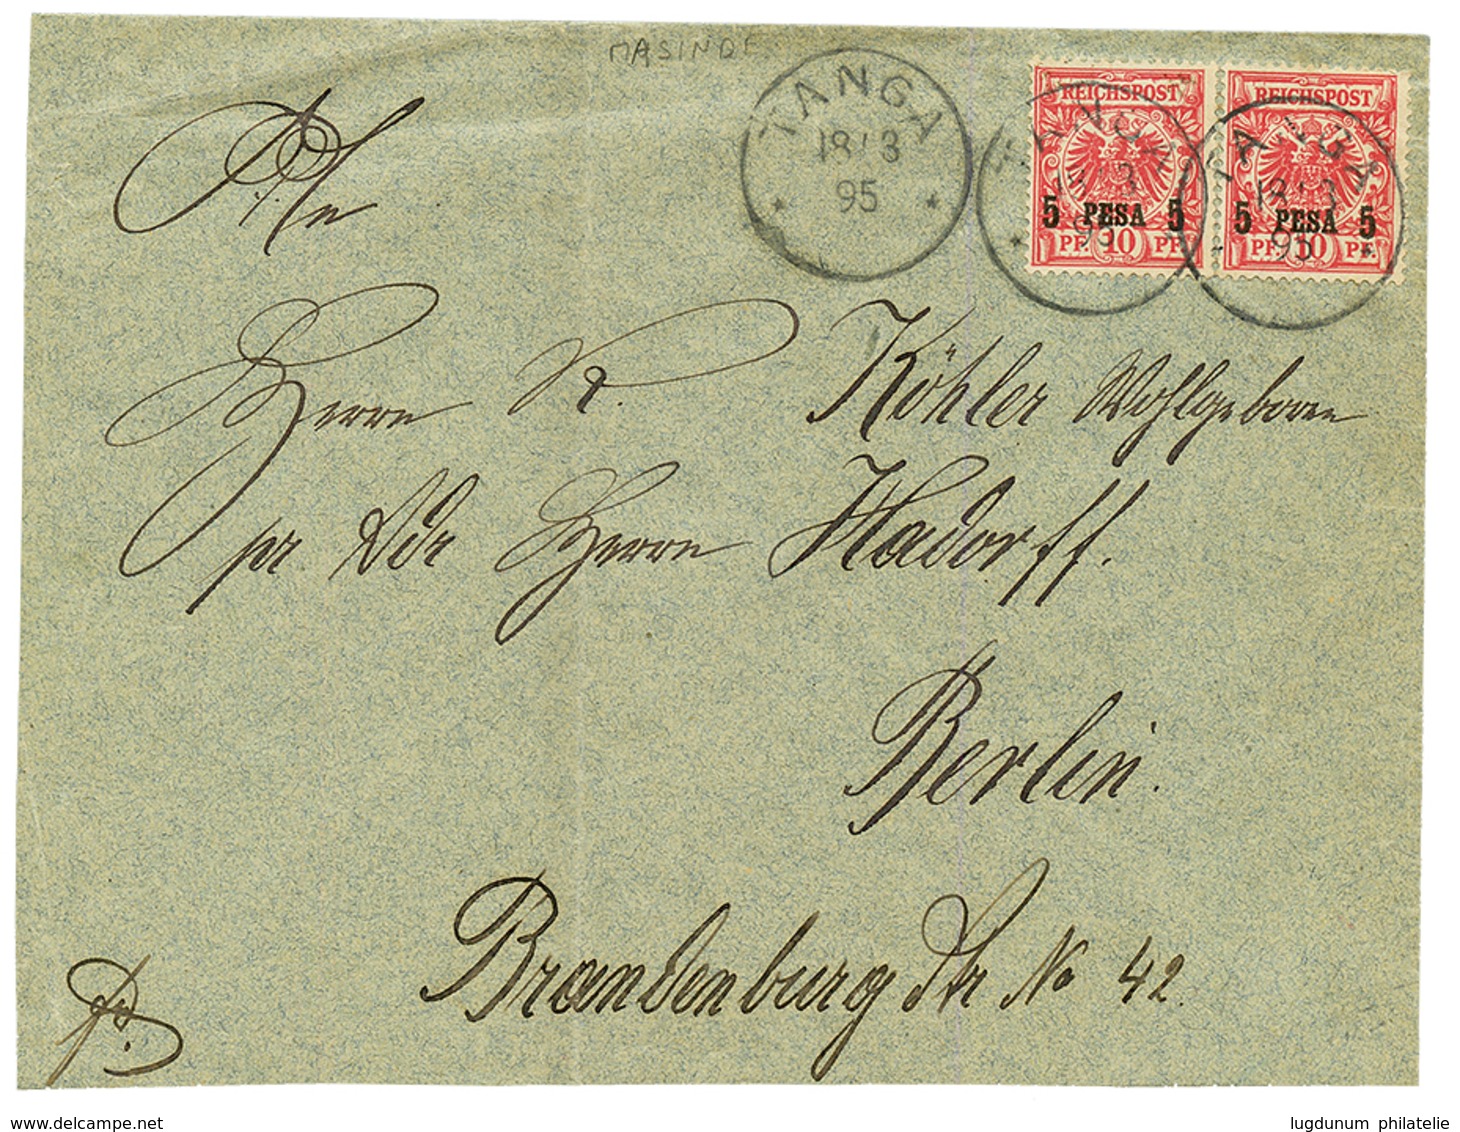 MASINDE
TANGA
18/3
95
TANGA
18/3
95
TANGA
18/3
95
REICHSPOST
5 PESA 5
PF. 10 PF.
REICHSPOST
5 PESA 5
PF. 10 PF.
An
Herrn R. Köhler Wohlgeboren
pr Adr Herrn Hadorff.
Berlin.
Brandenburg Str No 42.
delcampe.net
lugdunum philatelie